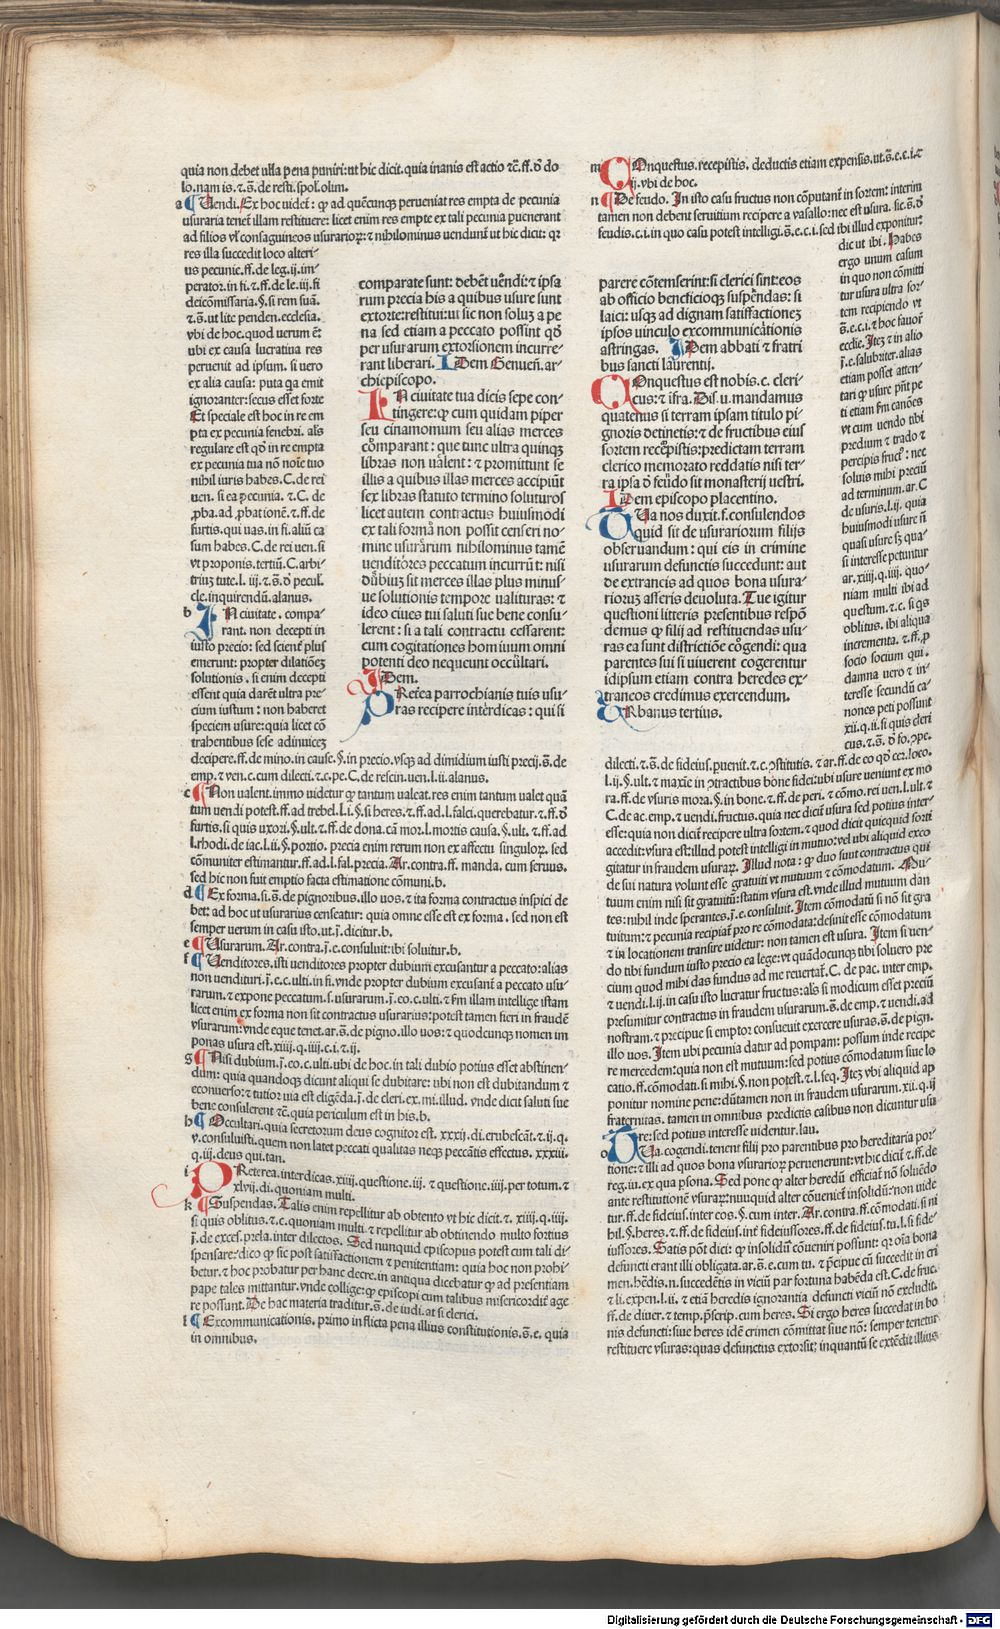 quia non debet ulla pena puniri: ut hic dicit. quia inanis est actio ⁊c̄. ff. ð do
lo. nam is. ⁊.s̄. de resti. spol. olum.
a Uendi. Ex hoc uidet᷑: ꝙ ad quēcunqꝫ perueniat res empta de pecunia
usuraria tenet᷑ illam restituere: licet enim res empte ex tali pecunia ꝑuenerant
ad filios vl̓ consaguineos usurarioꝝ: ⁊ nihilominus uendunt᷑ ut hic dicit: qꝛ
res illa succedit loco alteri-
us pecunie. ff. de leg. ij. im-
perator. in fi. ⁊. ff. de le. iij. fi
deicōmissaria. §. si rem suā.
⁊.s̄. ut lite penden. ecclesia.
vbi de hoc. quod uerum ē:
ubi ex causa lucratiua res
peruenit ad ipsum. si uero
ex alia causa: puta qꝛ emit
ignoranter: secus esset forte
Et speciale est hoc in re em
pta ex pecunia fenebri. als̄
regulare est qð in re empta
ex pecunia tua nō noīe tuo
nihil iuris habes. C. de rei
uen. si ea pecunia. ⁊. C. de
ꝓba. ad ꝓbationē. ⁊. ff. de
furtis. qui uas. in fi. aliū ca
sum habes. C. de rei uen. si
vt proponis. tertiū. C. arbi-
triū tute. l. iij. ⁊.s̄. ð pecul̓.
cle. inquirendū. alanus.
b IN ciuitate. compa-
rant. non decepti in
iusto precio: sed scient᷑ plus
emerunt: propter dilatiōeꝫ
solutionis. si enim decepti
essent quia darēt ultra pre-
cium iustum: non haberet
speciem usure: quia licet cō
trahentibus sese adinuiceꝫ
decipere. ff. de mino. in cause. §. in precio. vsqꝫ ad dimidium iusti precij. s̄. de
emp. ⁊ ven. c. cum dilecti. ⁊. c. pe. C. de rescin. uen. l. ii. alanus.
c Non ualent. immo uidetur ꝙ tantum ualeat. res enim tantum ualet quā
tum uendi potest. ff. ad trebel. l. i. §. si heres. ⁊. ff. ad. l. falci. querebatur. ⁊. ff. ð
furtis. si quis uxori. §. ult. ⁊. ff. de dona. cā mor. l. mortis causa. §. ult. ⁊. ff. ad
l. rhodi. de iac. l. ii. §. portio. precia enim rerum non ex affectu singuloꝝ. sed
cōmuniter estimantur. ff. ad. l. fal. precia. Ar. contra. ff. manda. cum seruus.
sed hic non fuit emptio facta estimatione cōmuni. b.
d Ex forma. si. s̄. de pignoribus. illo uos. ⁊ ita forma contractus inspici de
bet: ad hoc ut usurarius censeatur: quia omne esse est ex forma. sed non est
semper uerum in casu isto. ut. j̄. dicitur. b.
e Usurarum. Ar. contra. j̄. e. consuluit: ibi soluitur. b.
f Uenditores. isti uenditores propter dubium excusantur a peccato: alias
non uendituri. j̄. e. c. ulti. in fi. vnde propter dubium excusant᷑ a peccato usu-
rarum. ⁊ expone peccatum. s. usurarum. j̄. eo. c. ulti. ⁊ fm illam intellige istam
licet enim ex forma non sit contractus usurarius: potest tamen fieri in fraudē
vsurarum: vnde eque tenet. ar. s̄. de pigno. illo uos: ⁊ quodcunqꝫ nomen im
ponas usura est. xiiij. q. iiij. c. i. ⁊. ij.
g Nisi dubium. j̄. eo. c. ulti. ubi de hoc. in tali dubio potius esset abstinen-
dum: quia quandoqꝫ dicunt aliqui se dubitare: ubi non est dubitandum ⁊
econuerso: ⁊ tutior uia est eligēda. j̄. de cleri. ex. mi. illud. vnde dicit saluti sue
bene consulerent ⁊c̄. quia periculum est in his. b.
h Occultari. quia secretorum deus cognitor est. xxxij. di. erubescāt. ⁊. ij. q.
v. consuluisti. quem non latet peccati qualitas neqꝫ peccātis effectus. xxxiii.
q. iij. deus qui. tan.
i PReterea. interdicas. xiiii. questione. iij. ⁊ questione. iiij. per totum. ⁊
xlvij. di. quoniam multi.
k Suspendas. Talis enim repellitur ab obtento vt hic dicit. ⁊. xiiij. q. iiij.
si quis oblitus. ⁊. c. quoniam multi. ⁊ repellitur ab obtinendo multo fortius
j̄. de excel. prela. inter dilectos. Sed nunquid episcopus potest cum tali di-
spensare: dico ꝙ sic post satisfactionem ⁊ penitentiam: quia hoc non prohi-
betur. ⁊ hoc probatur per hanc decre. in antiqua dicebatur ꝙ ad presentiam
pape tales mittantur. vnde collige: ꝙ episcopi cum talibus misericordit᷑ age
re possunt. De hac materia traditur. s̄. de iudi. at si clerici.
l Excommunicationis. primo inflicta pena illius constitutionis. s̄. e. quia
in omnibus.
comparate sunt: debēt uēndi: ⁊ ipsa
rum precia his a quibus usure sunt
extorte: restitui: ut sic non soluꝫ a pe
na sed etiam a peccato possint qð
per usurarum extorsionem incurre-
rant liberari. IDem Genuen̄. ar-
chiepiscopo.
IN ciuitate tua dicis sepe con-
tingere: ꝙ cum quidam piper
seu cinamomum seu alias merces
cōmparant: que tunc ultra quinqꝫ
libras non ualent: ⁊ promittunt se
illis a quibus illas merces accipiūt
sex libras statuto termino soluturos
licet autem contractus huiusmodi
ex tali forma non possit censeri no-
mine usurarum nihilominus tamē
uenditores peccatum incurrūt: nisi
dubiuꝫ sit merces illas plus minus-
ue solutionis tempore ualituras: ⁊
ideo ciues tui saluti sue bene consu-
lerent: si a tali contractu cessarent:
cum cogitationes hominum omni
potenti deo nequeunt occultari.
IDem.
PRetea parrochianis tuis usu-
ras recipere interdicas: qui si
m COnquestus. recepistis. deductis etiam expensis. ut. s̄. e. c. i. ⁊
ij. vbi de hoc.
n De feudo. In isto casu fructus non cōputant᷑ in sortem: interim
tamen non debent seruitium recipere a vasallo: nec est usura. sic. s̄. ð
feudis. c. i. in quo casu potest intelligi. s̄. e. c. i. sed ibi illud exponitur:
dic ut ibi. Habes
ergo unum casum
in quo non cōmitti
tur usura ultra sor-
tem recipiendo vt
s̄. e. c. i. ⁊ hoc fauor̄
ecclie. Iteꝫ ⁊ in alio
j̄. e. salubriter. alias
etiam posset atten-
tari ꝙ usure pn̄t pe
ti etiam fm canōes
vt cum uendo tibi
predium ⁊ trado ⁊
percipis fruct᷑: nec
soluis mihi preciū
ad terminum. ar. C
de usuris. l. ij. quia
huiusmodi usure n̄
quasi usure sꝫ qua-
si interesse petuntur
ar. xiiij. q. iiij. quo-
niam multi ibi ad
questum. ⁊. c. si qs
oblitus. ibi aliqua
incrementa. ⁊. ff. ꝓ
socio socium qui.
damna uero ⁊ in-
teresse secundū ca-
nones peti possunt
xii. q. ii. si quis cleri
cus. ⁊. s̄. ð fo. ꝯpe.
parere cōtemserint: si clerici sint: eos
ab officio beneficioqꝫ suspēndas: si
laici: usqꝫ ad dignam satisfactioneꝫ
ipsos uinculo excommunicationis
astringas. IDem abbati ⁊ fratri
bus sancti laurentij.
COnquestus est nobis. c. cleri-
cus: ⁊ īfra. Dis. u. mandamus
quatenus si terram ipsam titulo pi-
gnoris detinetis: ⁊ de fructibus eius
sortem recēpistis: predictam terram
clerico memorato reddatis nisi ter-
ra ipsa ð fēudo sit monasterij uestri.
IDem episcopo placentino.
TUa nos duxit. f. consulendos
quid sit de usurariorum filijs
obseruandum: qui eis in crimine
usurarum defunctis succedunt: aut
de extraneis ad quos bona usura-
rioruꝫ asseris deuoluta. Tue igitur
questioni litteris presentibus respō
demus ꝙ filij ad restituendas usu-
ras ea sunt districtiōe cōgendi: qua
parentes sui si uiuerent cogerentur
idipsum etiam contra heredes ex-
traneos credimus exercendum.
URbanus tertius.
dilecti. ⁊. s̄. de fideius. ꝑuenit. ⁊. c. ꝯstitutis. ⁊ ar. ff. de eo qð cer. loco.
l. ij. §. ult. ⁊ maxie in ꝯtractibus bone fidei: ubi usure veniunt ex mo
ra. ff. de vsuris mora. §. in bone. ⁊. ff. de peri. ⁊ cōmo. rei uen. l. ult. ⁊
C. de ac. emp. ⁊ uendi. fructus. quia nec dicit᷑ usura sed potius inter-
esse: quia non dicit᷑ recipere ultra sortem. ⁊ quod dicit quicquid sorti
accedit: vsura est: illud potest intelligi in mutuo: vel ubi aliquid exco
gitatur in fraudem usuraꝝ. Illud nota: ꝙ duo sunt contractus qui
de sui natura volunt esse gratuiti vt mutuum ⁊ cōmodatum. Mu-
tuum enim nisi sit gratuitū: statim vsura est. vnde illud mutuum dan
tes: nihil inde sperantes. j̄. e. consuluit. Item cōmodatū si nō sit gra
tuitum: ⁊ pecunia recipiat᷑ pro re cōmodata: desinit esse cōmodatum
⁊ in locationem transire uidetur: non tamen est usura. Item si uen-
do tibi fundum iusto precio ea lege: vt quādocunqꝫ tibi soluero pre
cium quod mihi das fundus ad me reuertat᷑. C. de pac. inter emp.
⁊ uendi. l. ij. in casu isto lucratur fructus: als̄ si modicum esset preciū
presumitur contractus in fraudem usurarum. s̄. de emp. ⁊ uendi. ad
nostram. ⁊ precipue si emptor consueuit exercere usuras. s̄. de pign.
illo uos. Item ubi pecunia datur ad pompam: possum inde recipe
re mercedem: quia non est mutuum: sed potius cōmodatum siue lo
catio. ff. cōmodati. si mihi. §. non potest. ⁊. l. seq. Iteꝫ vbi aliquid ap
ponitur nomine pene: dūtamen non in fraudem usurarum. xii. q. ij
fraternitas. tamen in omnibus predictis casibus non dicuntur usu
re: sed potius interesse uidentur. lau.
o TUa. cogendi. tenent᷑ filij pro parentibus pro hereditaria por-
tione: ⁊ illi ad quos bona vsurarioꝝ peruenerunt: vt hic dicit᷑ ⁊. ff. de
reg. iu. ex qua ꝑsona. Sed pone ꝙ alter heredū efficiat᷑ nō soluēdo
ante restitutionē vsuraꝝ: nunquid alter cōueniet᷑ insolidū: non uide
tur. ff. de fideius. inter eos. §. cum inter. Ar. contra. ff. cōmodati. si ni
hil. §. heres. ⁊. ff. de fideius. int᷑ fideiussores. ff. de fideius. tu. l. si fide-
iussores. Satis pōt dici: ꝙ insolidū cōueniri possunt: qꝛ oīa bona
defuncti erant illi obligata. ar. s̄. e. cum tu. ⁊ p̄cipue cū succedit in cri
men. hēdis. n. succedētis in viciū par fortuna habēda est. C. de fruc.
⁊ li. expen. l. ii. ⁊ etiā heredis ignorantia defuncti viciū nō excludit.
ff. de diuer. ⁊ temp. p̄scrip. cum heres. Si ergo heres succedat in bo
nis defuncti: siue heres idē crimen cōmittat siue nō: semper tenetur
restituere vsuras: quas defunctus extorsit: inquantū se extēdit illius
Digitalisierung gefördert durch die Deutsche Forschungsgemeinschaft - DFG